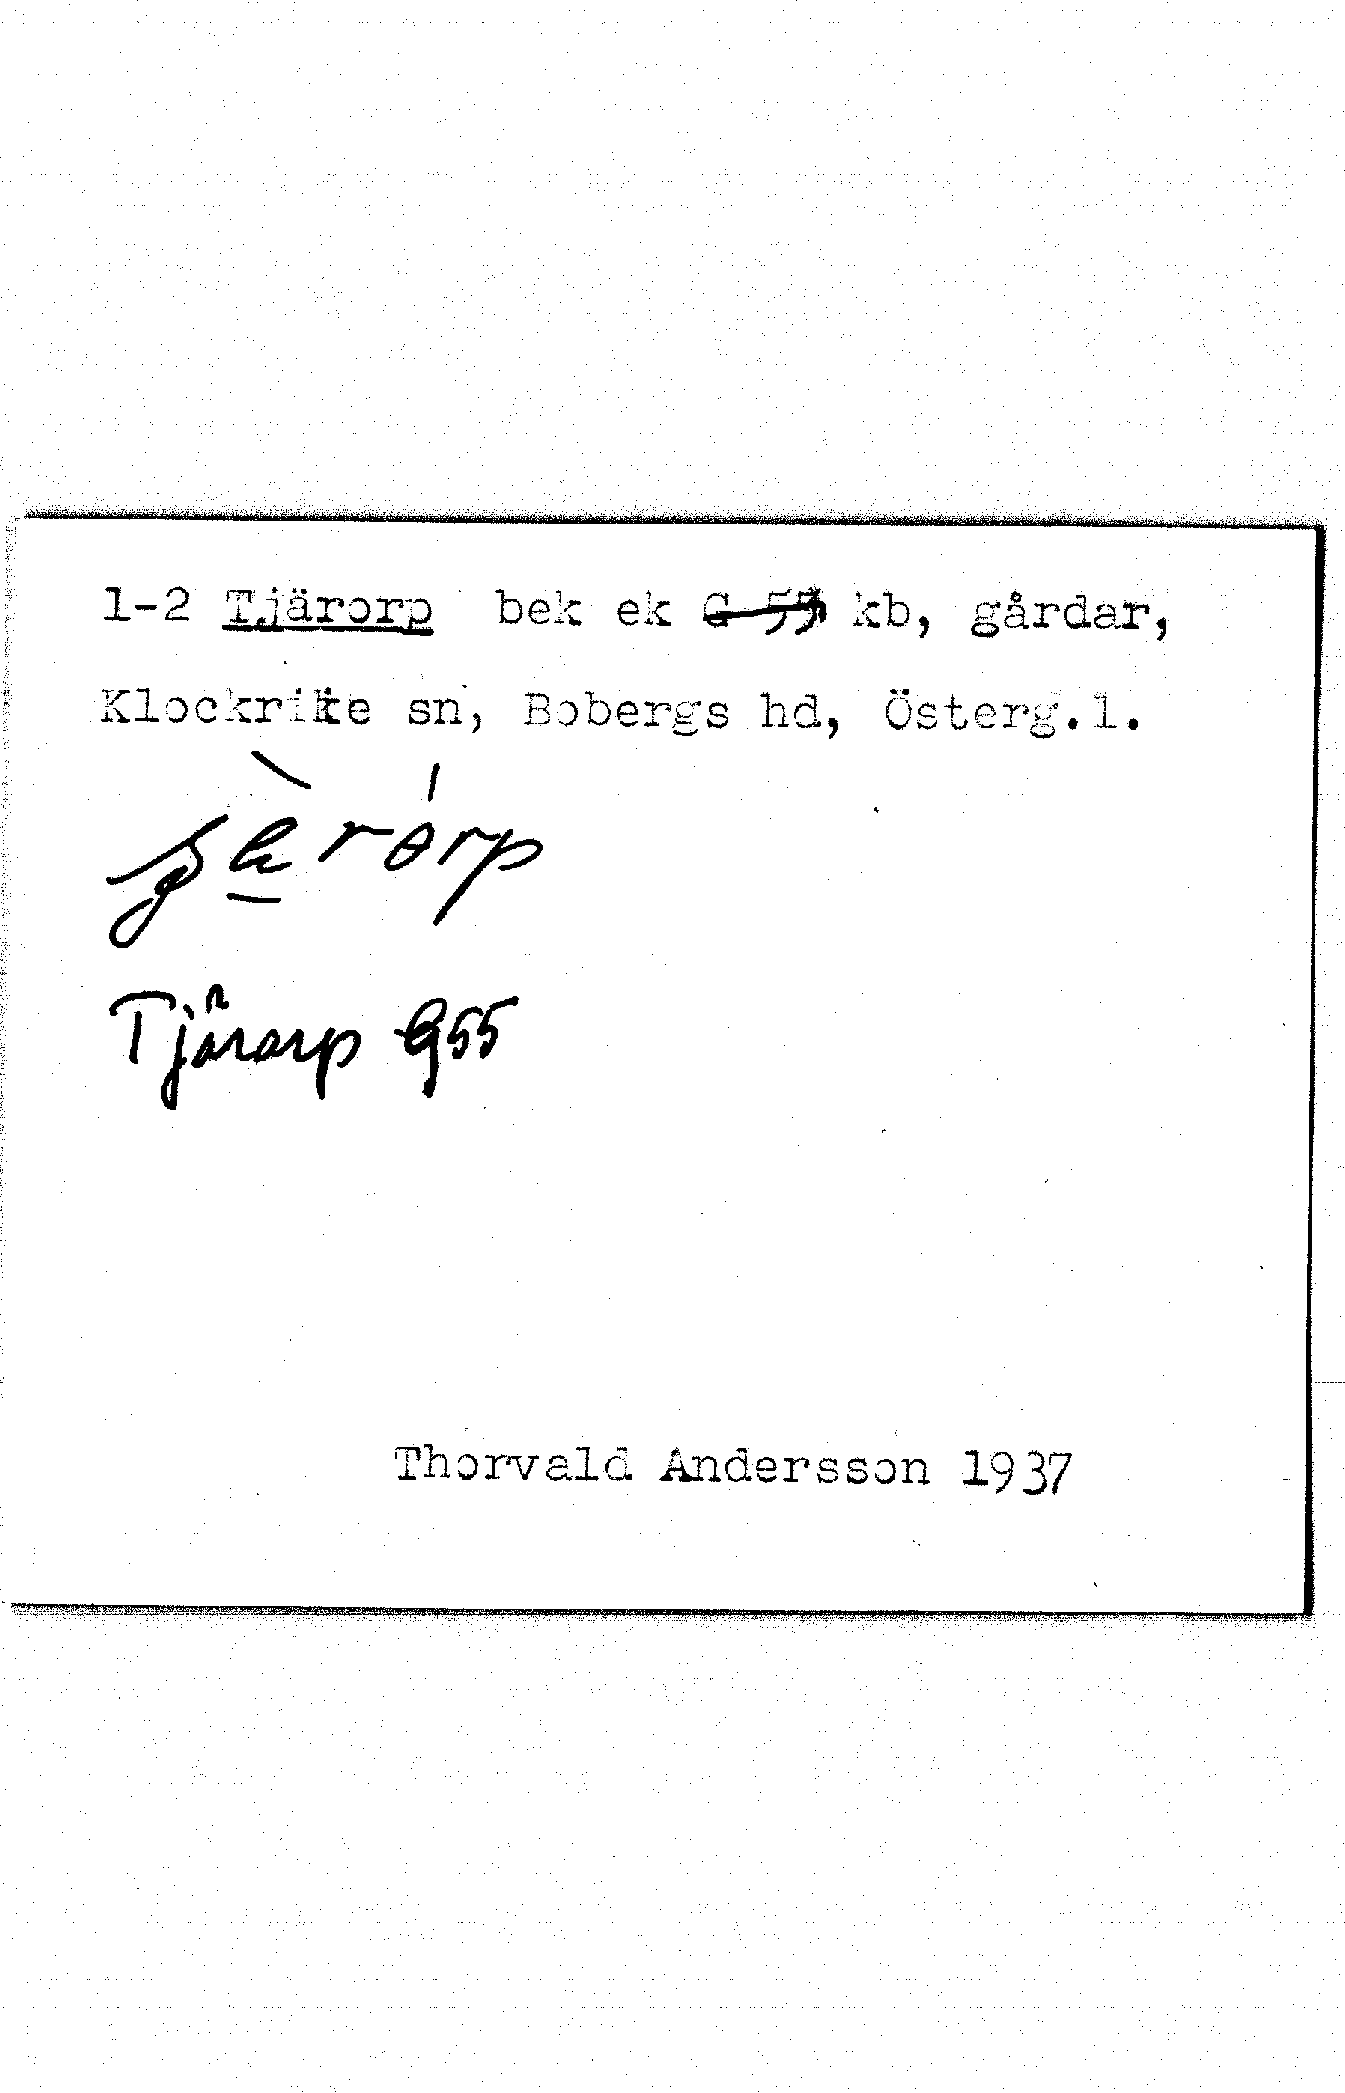 1-2 Tjärorp bek ek G 55 kb, gårdar,
Klockrike sn, Bobergs hd, Österg.l.
Tjärorp G55
Thorvald Andersson 1937